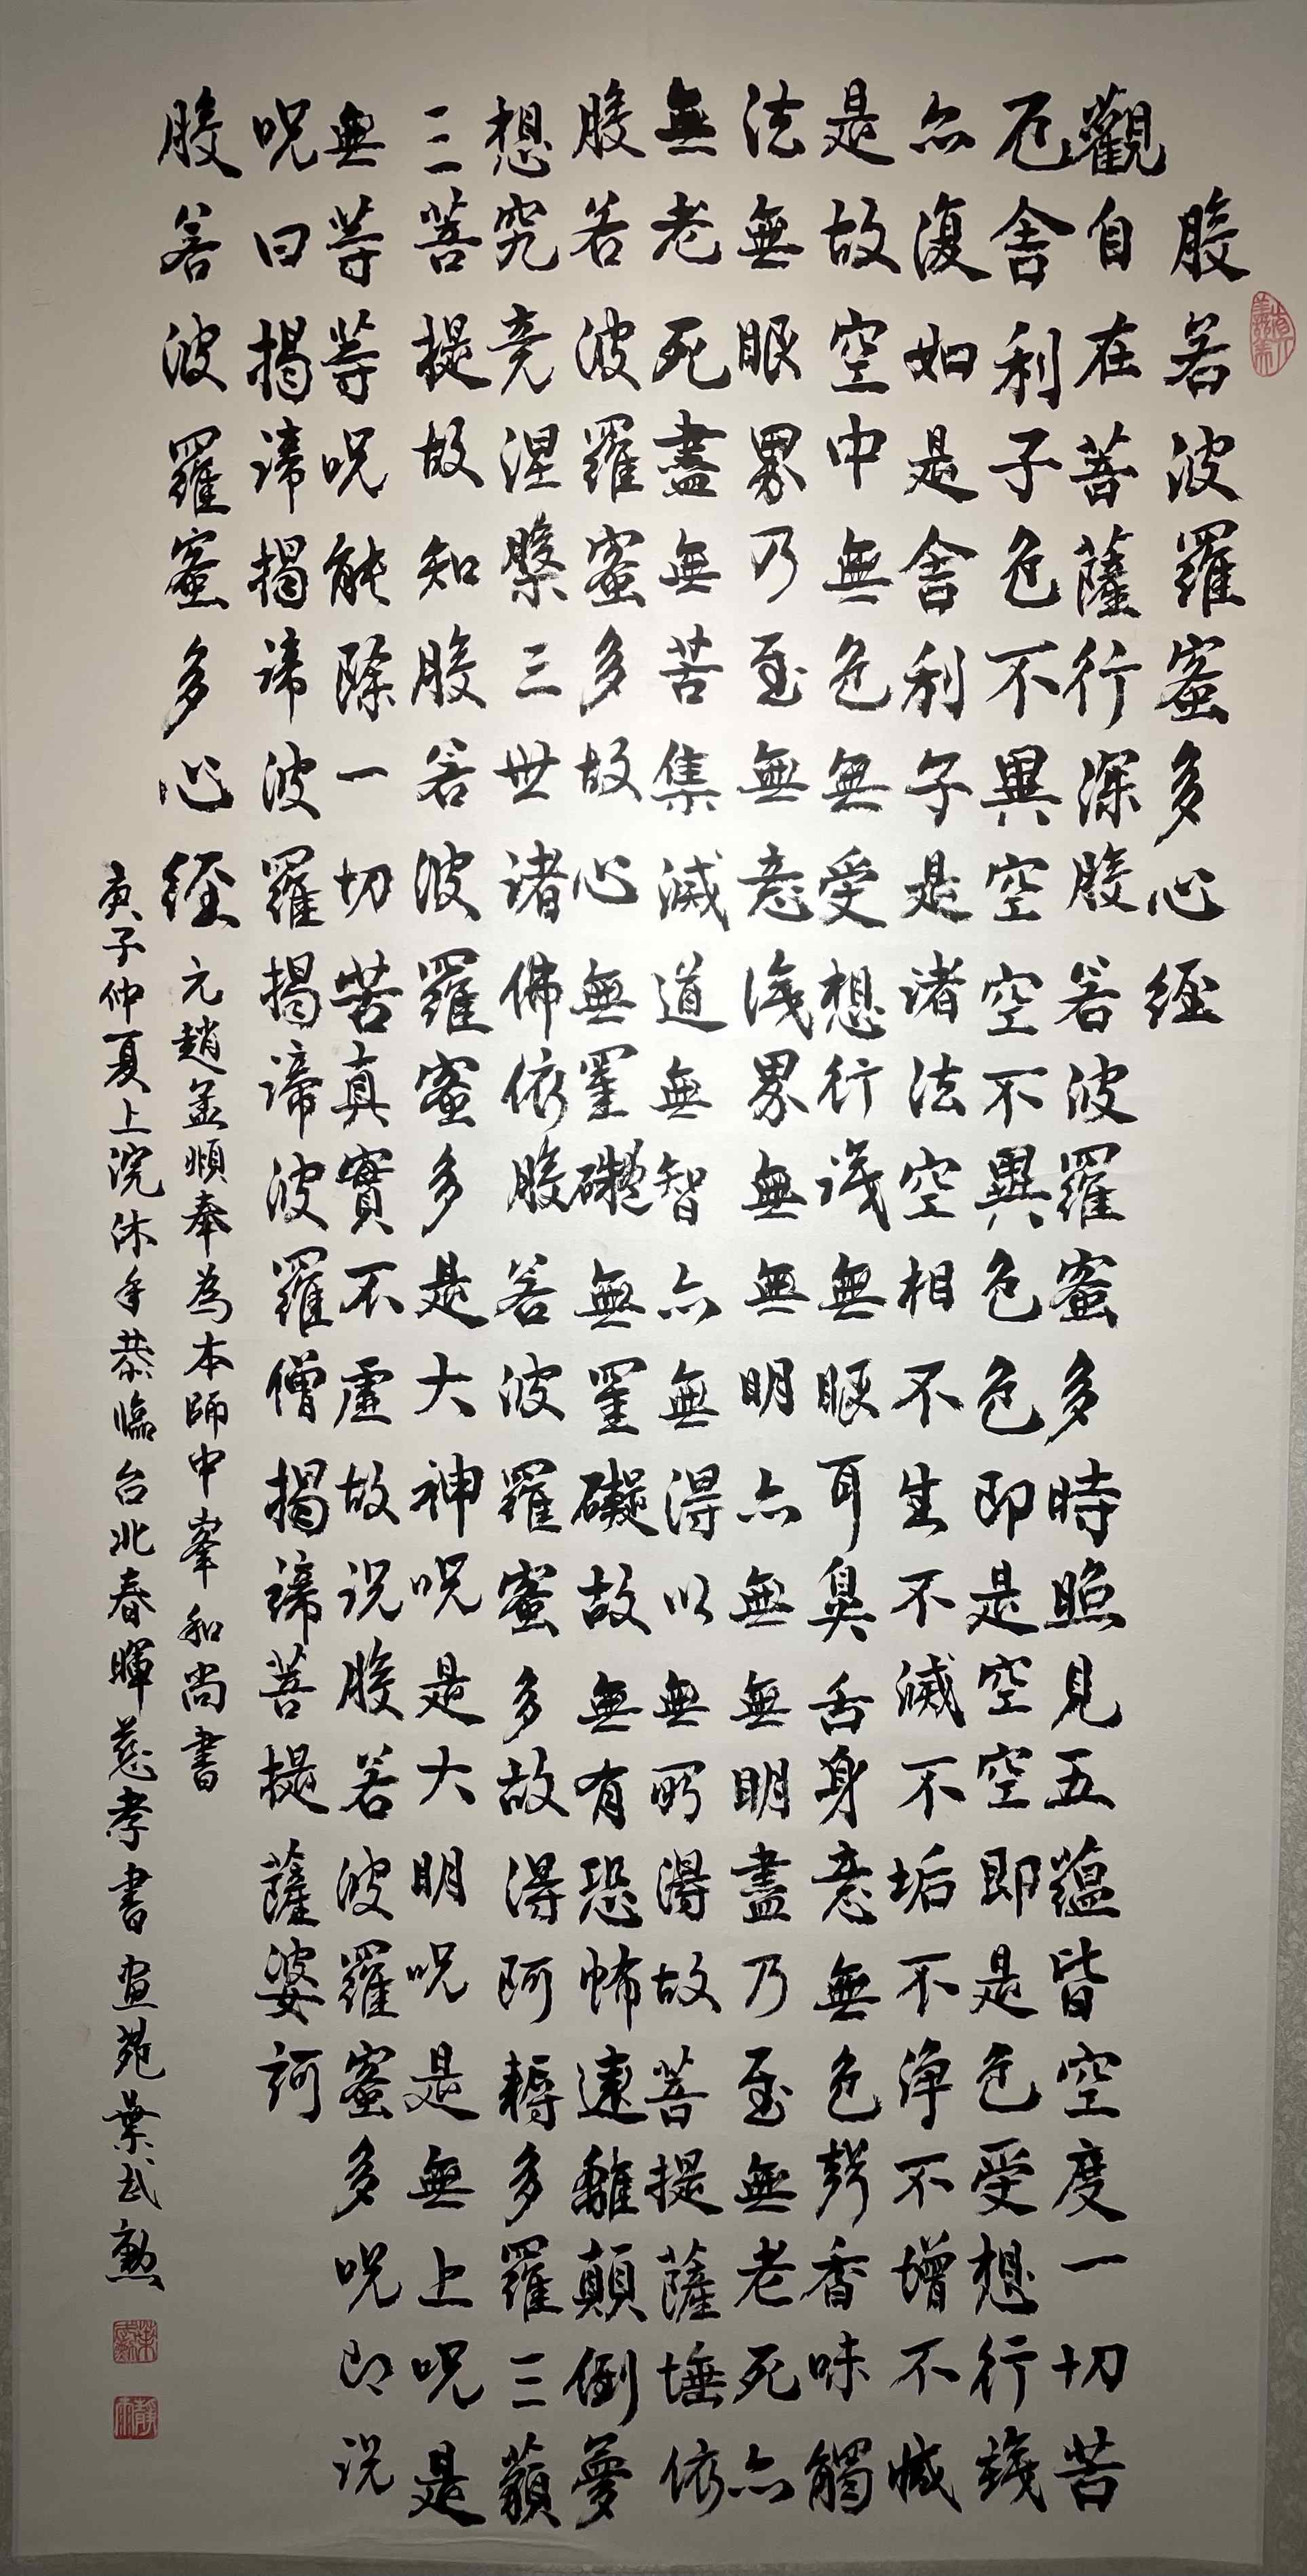 般若波羅蜜多心經
觀自在菩薩行深般若波羅蜜多時照見五蘊皆空度一切苦
厄舍利子色不異空空不異色色即是空空即是色受想行識
亦復如是舍利子是諸法空相不生不滅不垢不淨不增不減
是故空中無色無受想行識無眼耳鼻舌身意無色聲香味觸
法無眼界乃至無意識界無無明亦無無明盡乃至無老死亦
無老死盡無苦集滅道無智亦無得以無所得故菩提薩埵依
般若波羅蜜多故心無罣礙無罣礙故無有恐怖遠離顛倒夢
想究竟涅槃三世諸佛依般若波羅蜜多故得阿耨多羅三藐
三菩提故知般若波羅蜜多是大神呪是大明呪是無上呪是
無等等呪能除一切苦真實不虛故說般若波羅蜜多呪即說
呪曰揭諦揭諦波羅揭諦波羅僧揭諦菩提薩婆訶
般若波羅蜜多心經
元趙孟頫奉為本師中峯和尚書
庚子仲夏上浣沐手恭臨台北春暉慈孝書画苑葉武勲